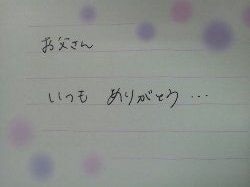 お父さん
いつも ありがとう …